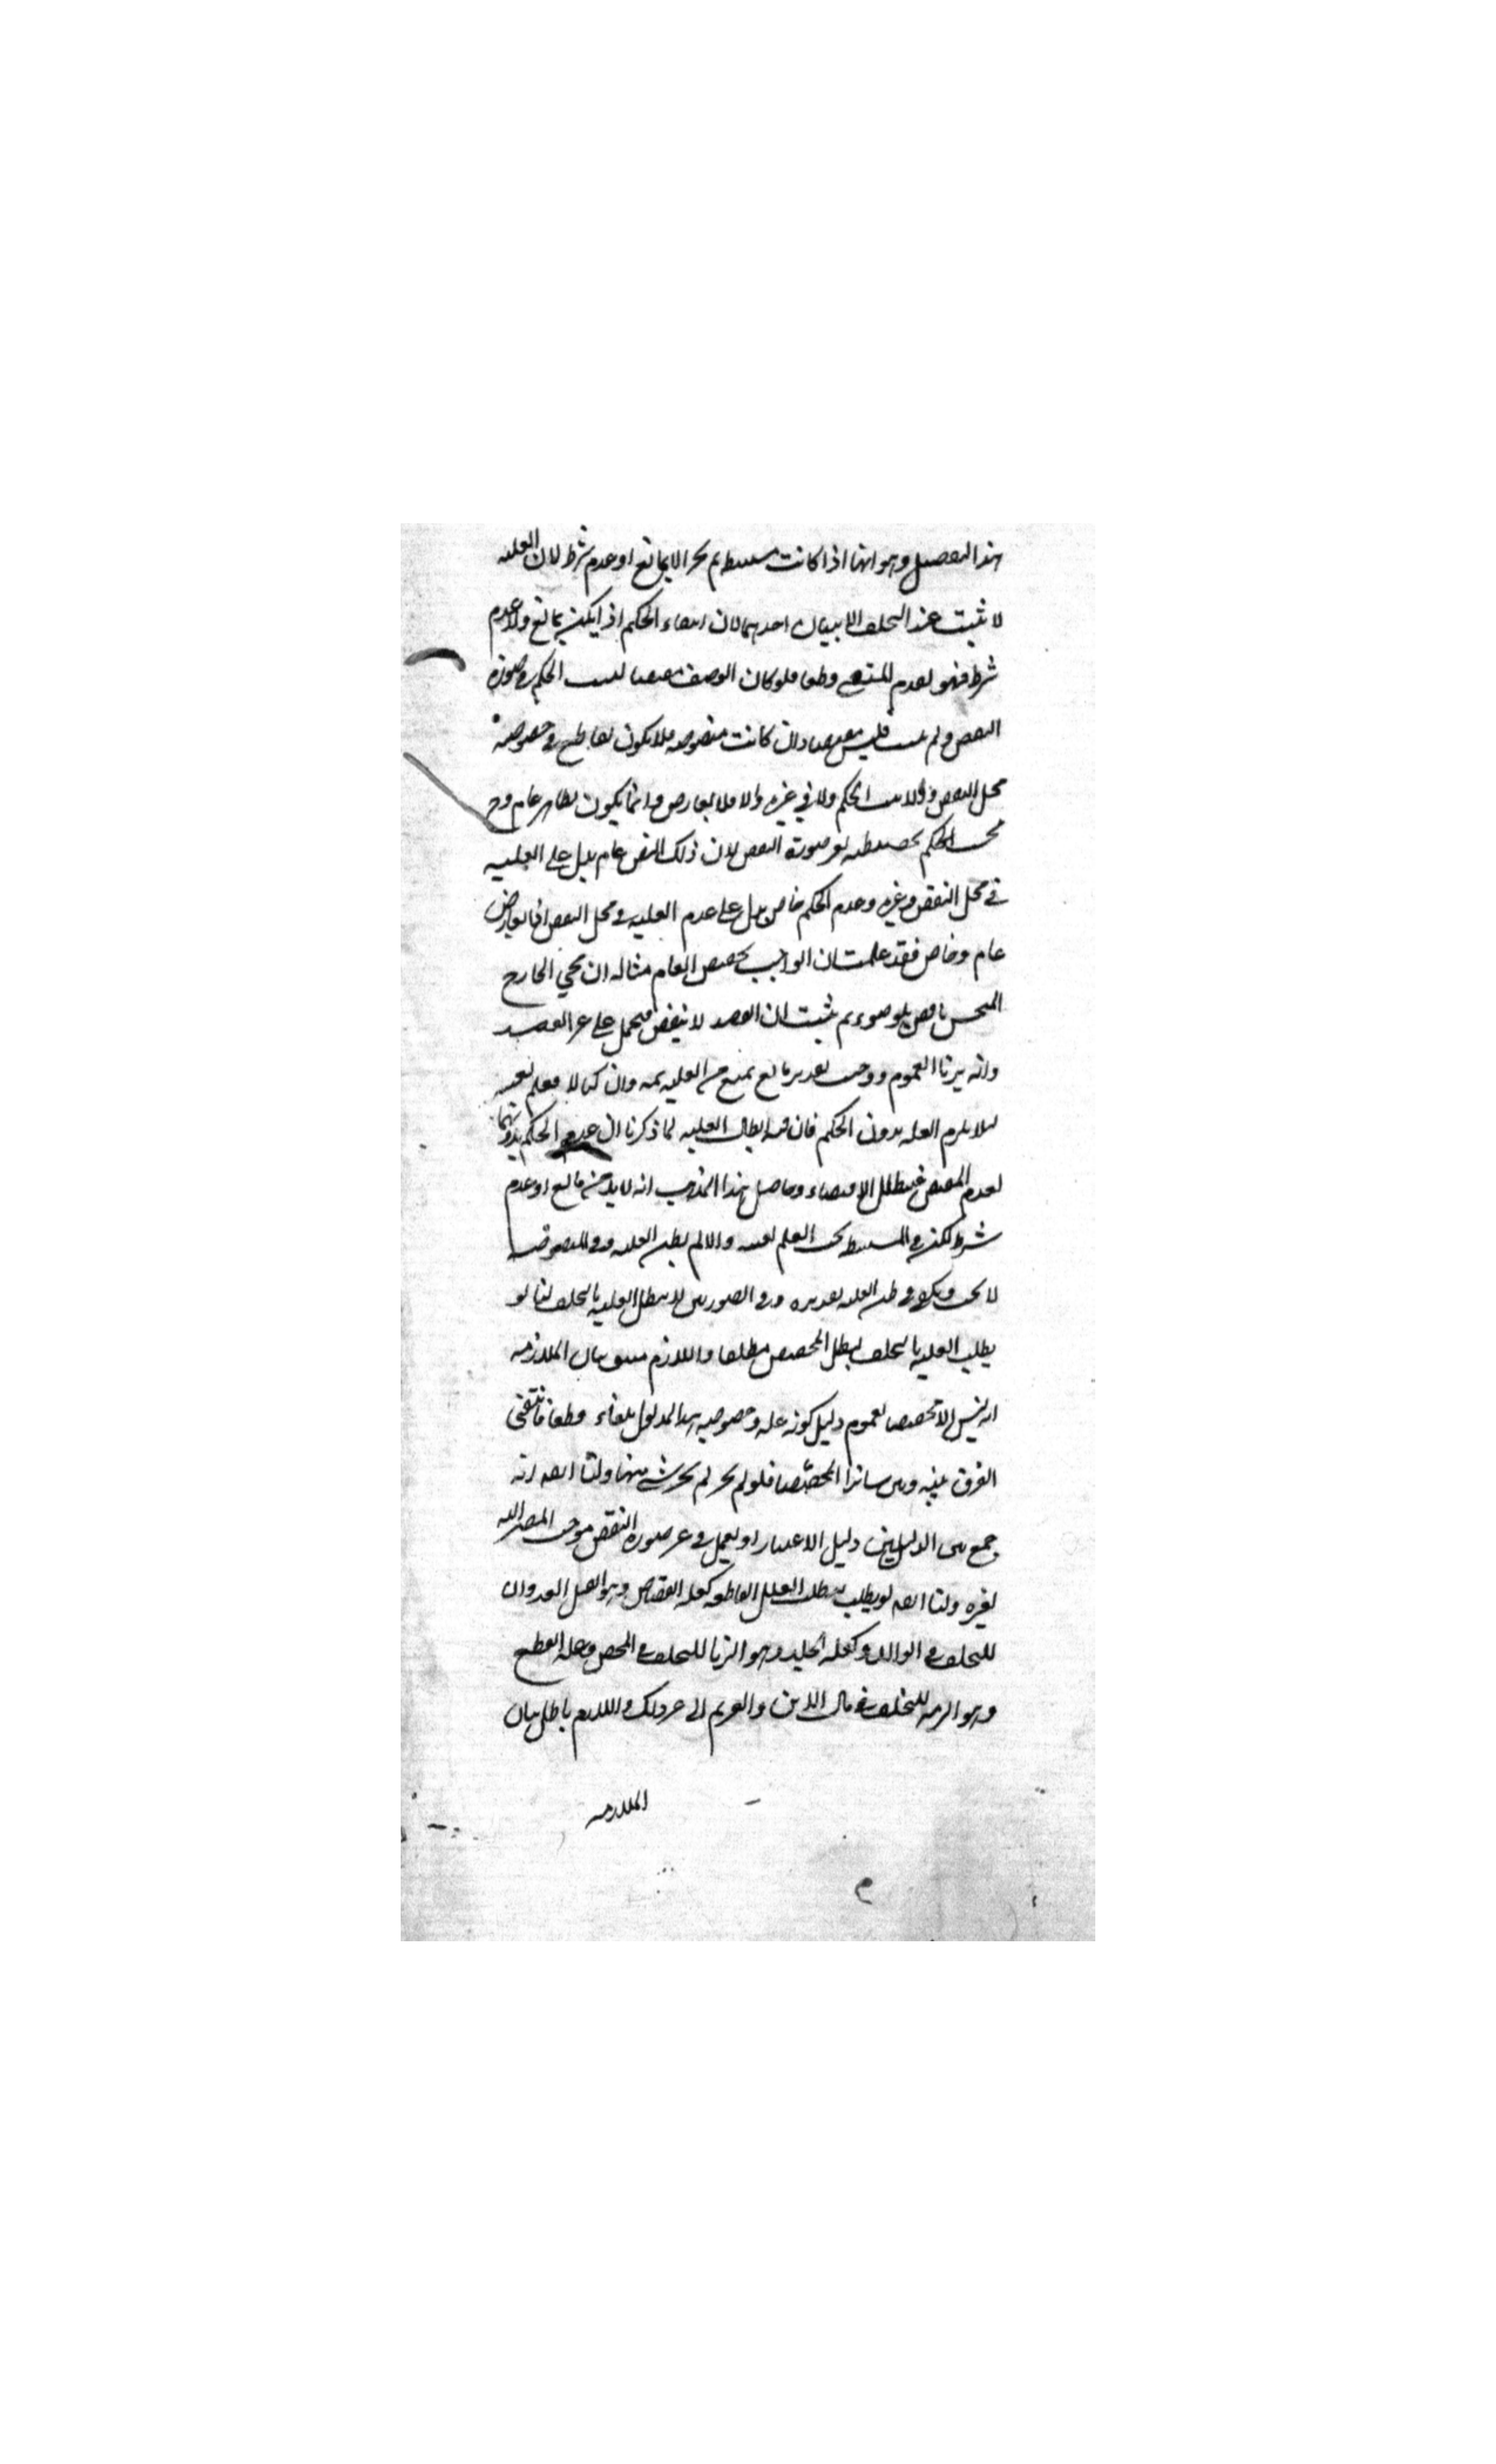 هذا التفصيل وهو انها اذا كانت مستنبطة لم يجز الا بمانع او عدم شرط لان العلية
لا تثبت عند التخلف الا ببيان احدهما لان انتفاء الحكم اذا لم يكن بمانع ولا عدم
شرط فهو لعدم المقتضي قطعا فلو كان الوصف مقتضيا لثبت الحكم في صورة
النقض ولم يثبت فليس مقتضيا وان كانت منصوصة فلا يكون بقاطع في خصوصية
محل النقض والا لثبت الحكم ولا في غيره والا فلا تعارض وانما يكون بظاهر عام وح
يجب الحكم بتخصيصه بغير صورة النقض لان ذلك النص عام يدل على العلية
في محل النقض وغيره وعدم الحكم خاص يدل على عدم العلية في محل النقض اذا تعارض
عام وخاص فقد علمت ان الواجب تخصيص العام مثاله ان يجي الخارج
النجس ناقض للوضوء ثم ثبت ان الفصد لا ينقض فيحمل على غير الفصد
وانه يرنا العموم ووجب تقدير مانع يمنع من العلية ثمه وان كنا لا نعلم بعينه
لئلا يلزم العلة بدون الحكم فان فيه ابطال العلية لما ذكرنا ان عدم الحكم بدونهما
لعدم المقتضي فيبطل الاقتضاء وحاصل هذا المذهب انه لا بد من مانع او عدم
شرط لكن في المستنبطة يجب العلم بعينه والا لم يظن العلية وفي المنصوصة
لا يجب ويكفي في ظن العلية تقديره وفي الصورتين لا تبطل العلية بالتخلف لنا لو
بطلت العلية بالتخلف لبطل المخصص مطلقا واللازم منتف بيان الملازمة
انه ليس الا تخصيصا لعموم دليل كونه علة وخصوصية هذا المدلول ملغاء قطعا فانتفى
الفرق بينه وبين سائر المخصصا فلو لم يجز لم يجز شي منها ولنا ايضا انه
جمع بين الدليلين دليل الاعتبار اذ يعمل في غير صورة النقض فوجب المصير اليه
لغيره ولنا ايضا لو بطلت لبطلت العلل القاطعة كعلة القصاص وهو القتل العدوان
للتخلف في الوالد وكعلة الجلد وهو الزنا للتخلف في المحصن وعلة القطع
وهو السرقة للتخلف في مال الابن والغريم الى غير ذلك واللازم باطل بيان
الملازمة